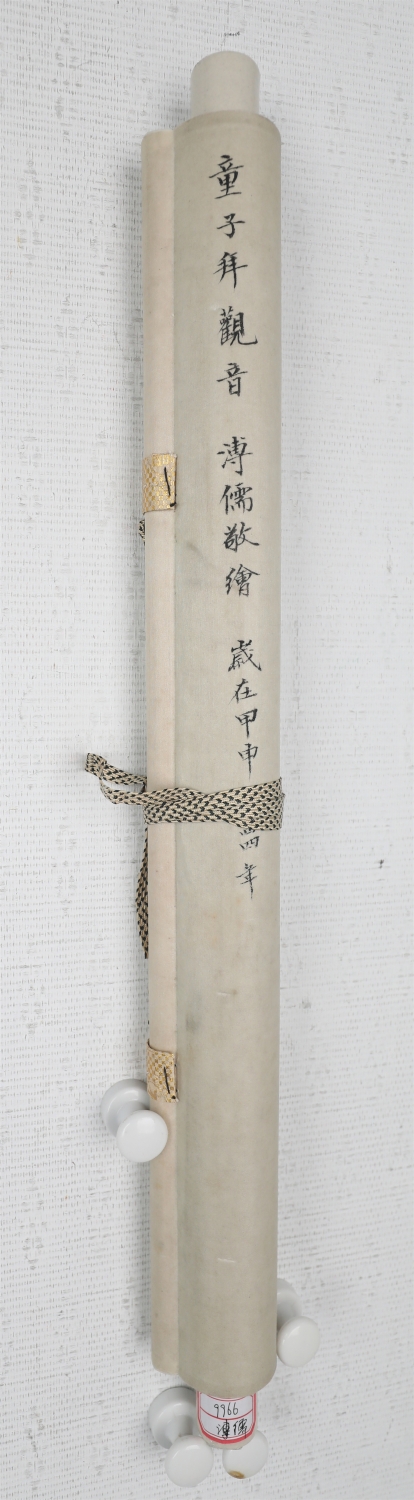 童子拜觀音 溥儒敬繪 歲在甲申 四年
9966
溥儒